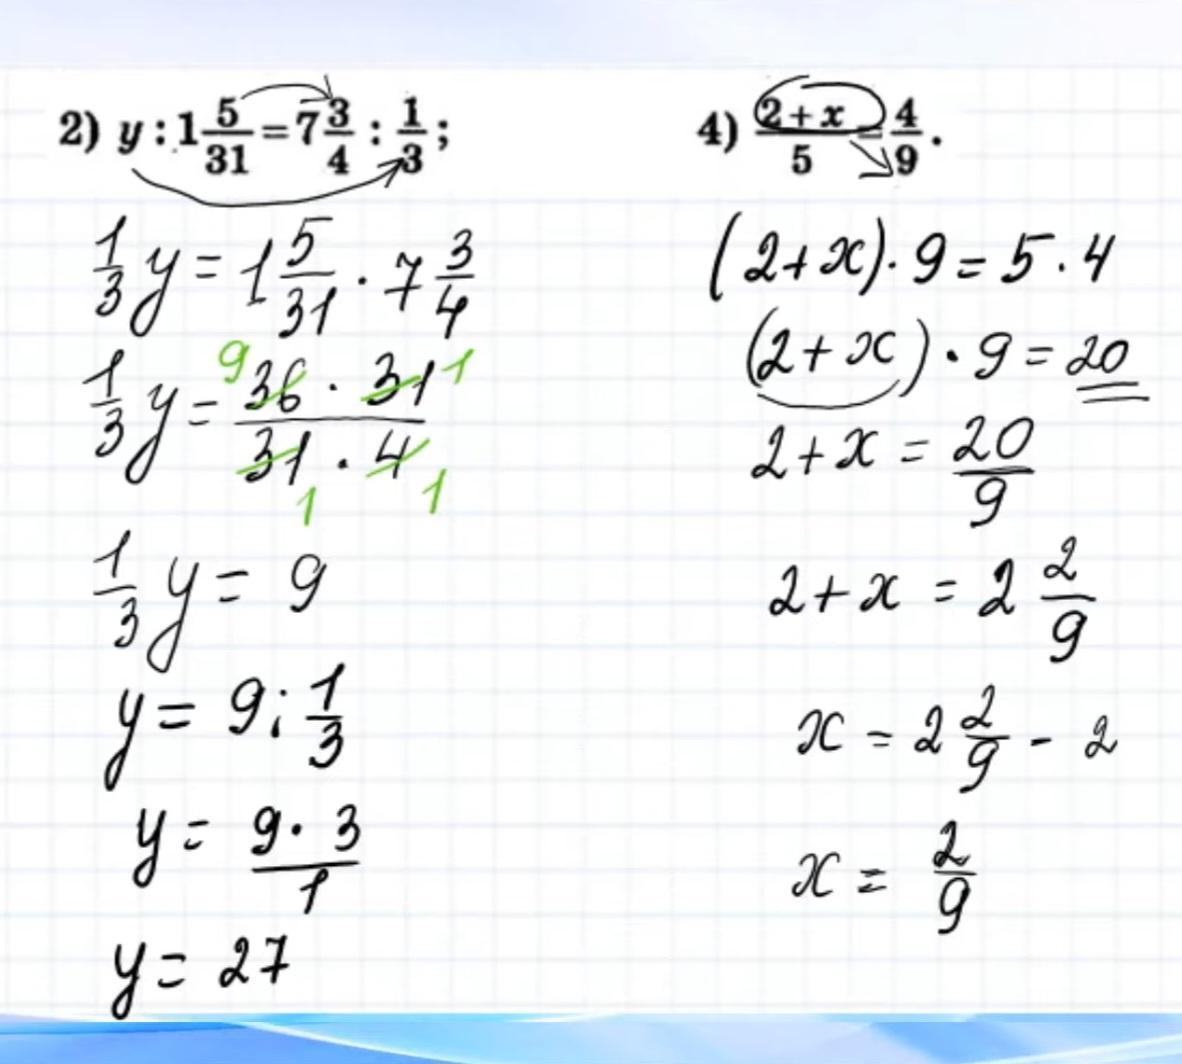 2) y : 1 5/31 = 7 3/4 : 1/3;
1/3 y = 1 5/31 · 7 3/4
1/3 y = 36 · 31 / 31 · 4
9 1
1 1
1/3 y = 9
y = 9 : 1/3
y = 9 · 3 / 1
y = 27
4) 2 + x / 5 = 4/9.
(2 + x) · 9 = 5 · 4
(2 + x) · 9 = 20
2 + x = 20/9
2 + x = 2 2/9
x = 2 2/9 - 2
x = 2/9